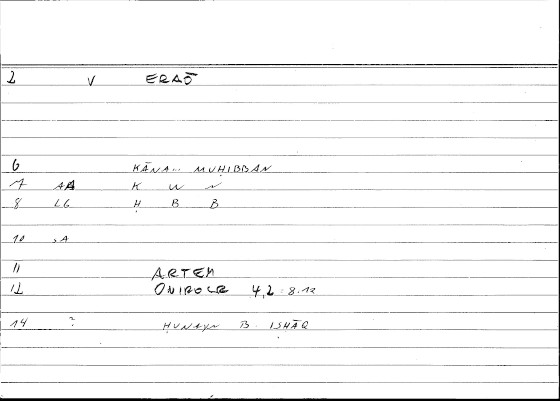 2 V ERAŌ
6 KĀNA... MUḤIBBAN
7 AA K W N
8 LG Ḥ B B
10 SA
11 ARTEM
12 ONIROCR 4,2 8.12
14 ? ḤUNAYN B. ISḤĀQ